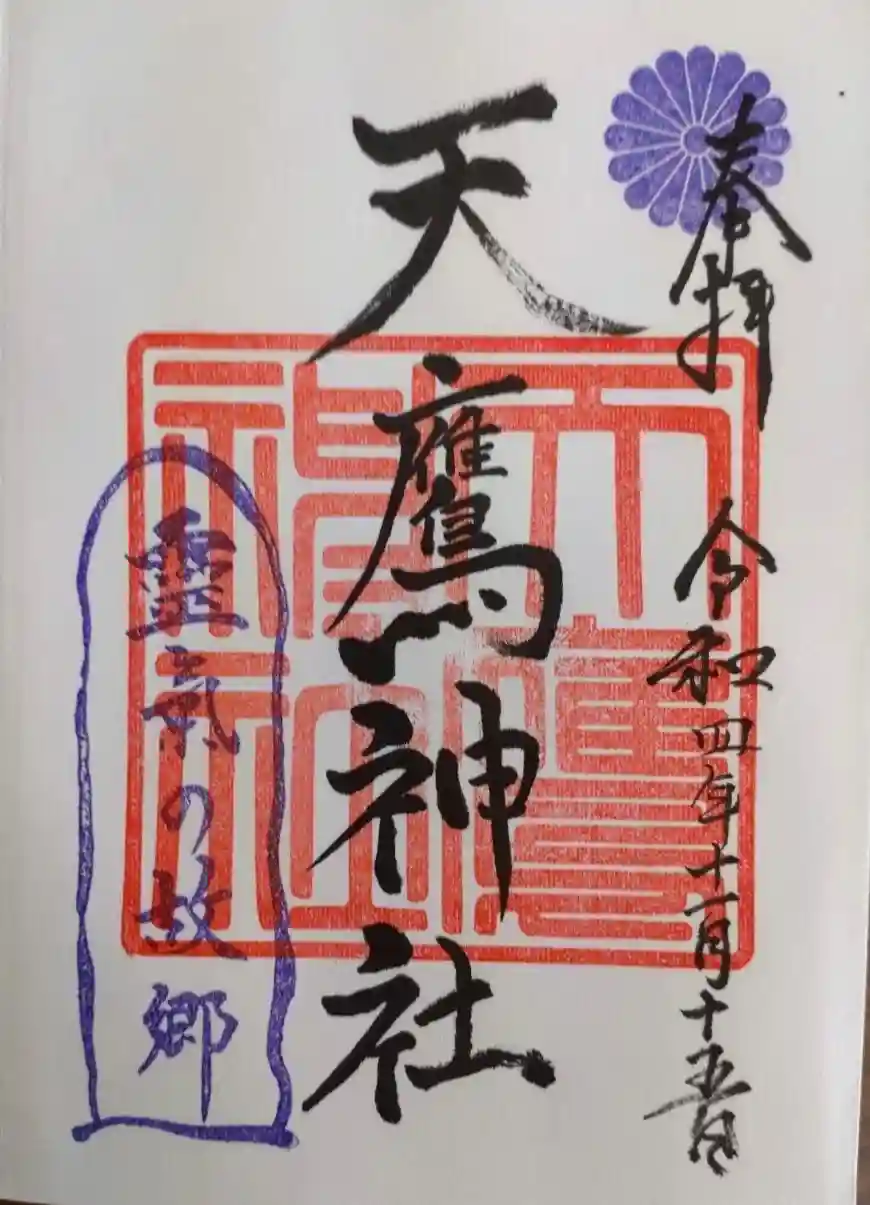 奉拝
令和四年十一月十五日
天鷹神社
天鷹神社
霊氣の故郷